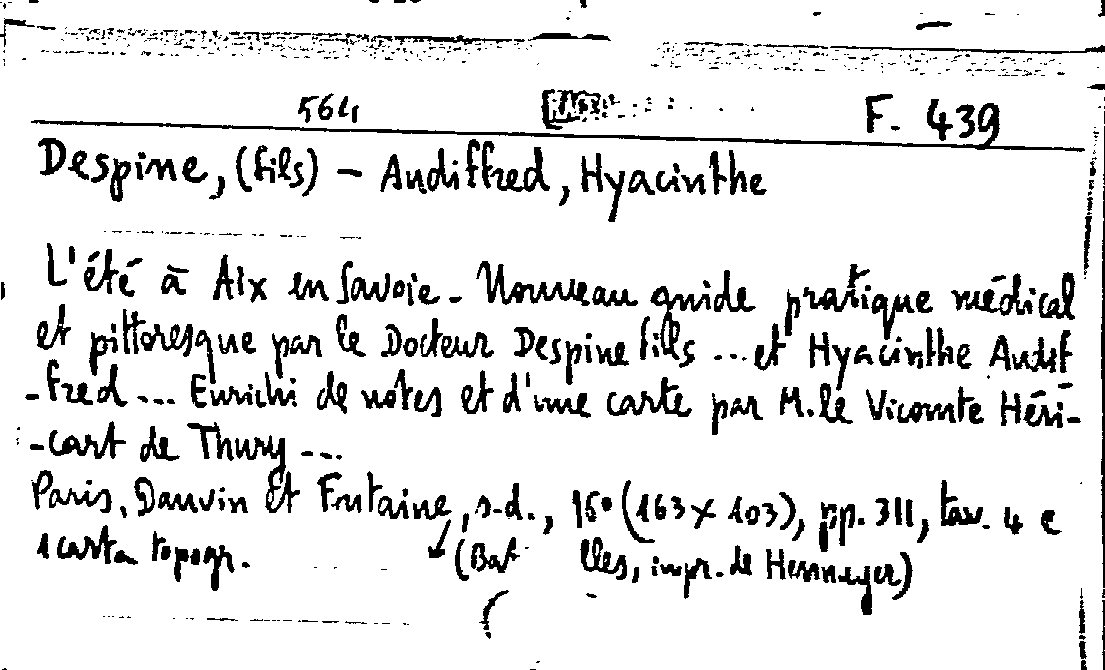 564 F. 439
Despine, (fils) - Audiffred, Hyacinthe
L'été à Aix en Savoie - Nouveau guide pratique médical
et pittoresque par le Docteur Despine fils ... et Hyacinthe Audif
-fred ... Enrichi de notes et d'une carte par M. le Vicomte Héri-
-cart de Thury ...
Paris, Dauvin et Fontaine, s.d., 16° (163 x 103), pp. 311, tav. 4 e
1 carta topogr. (Bat lles, impr. de Hennuyer)